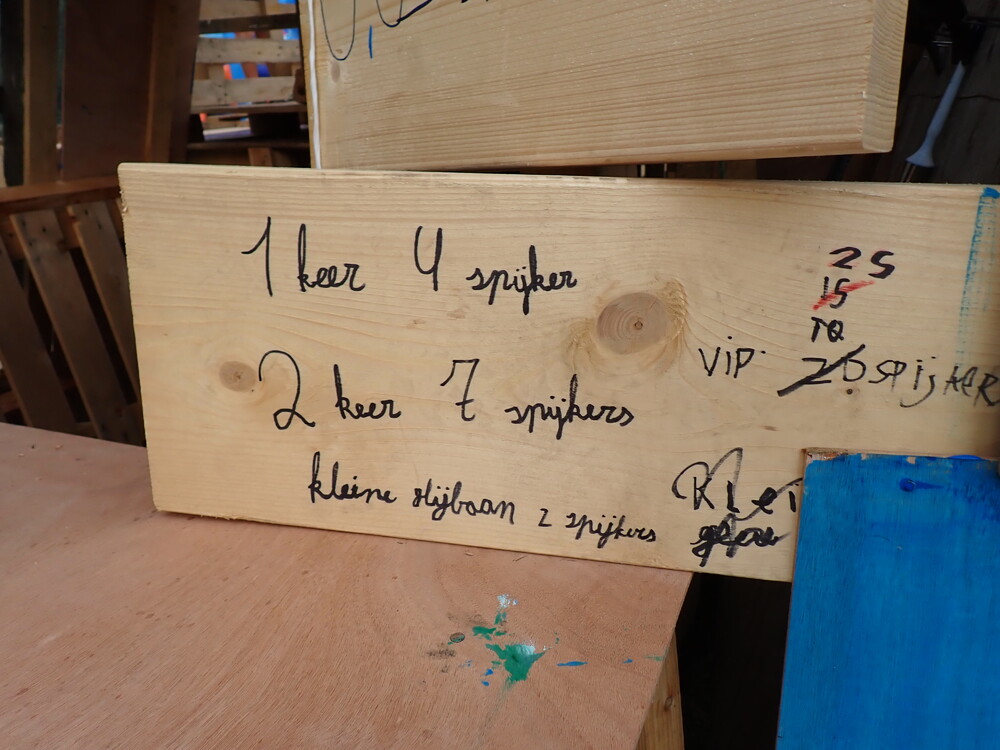 1 keer 4 spijker
25
15
10
VIP. 20 spijker
2 keer 7 spijkers
kleine slijbaan 2 spijkers
Klei